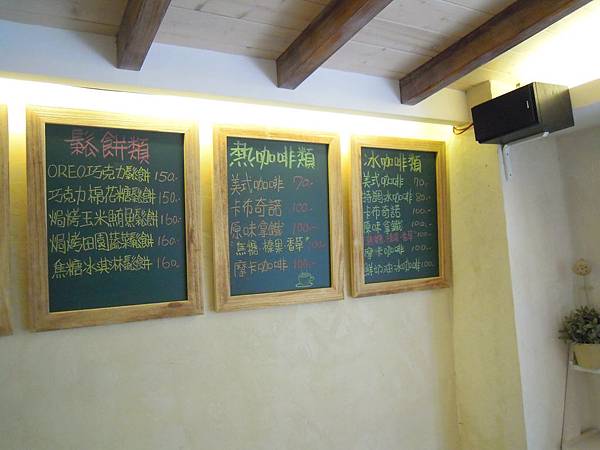 鬆餅類
OREO巧克力鬆餅 150.
巧克力棉花糖鬆餅 150.
焗烤玉米鮪魚鬆餅 160.
焗烤田園蔬菜鬆餅 160.
焦糖冰淇淋鬆餅 160.
熱咖啡類
美式咖啡 70.-
卡布奇諾 100.-
原味拿鐵 100.-
"焦糖.榛果.香草" 100.-
摩卡咖啡 100.-
冰咖啡類
美式咖啡 70.-
特調冰咖啡 80.-
卡布奇諾 100.-
原味拿鐵 100.-
摩卡咖啡 100.-
鮮奶油冰咖啡 100.-